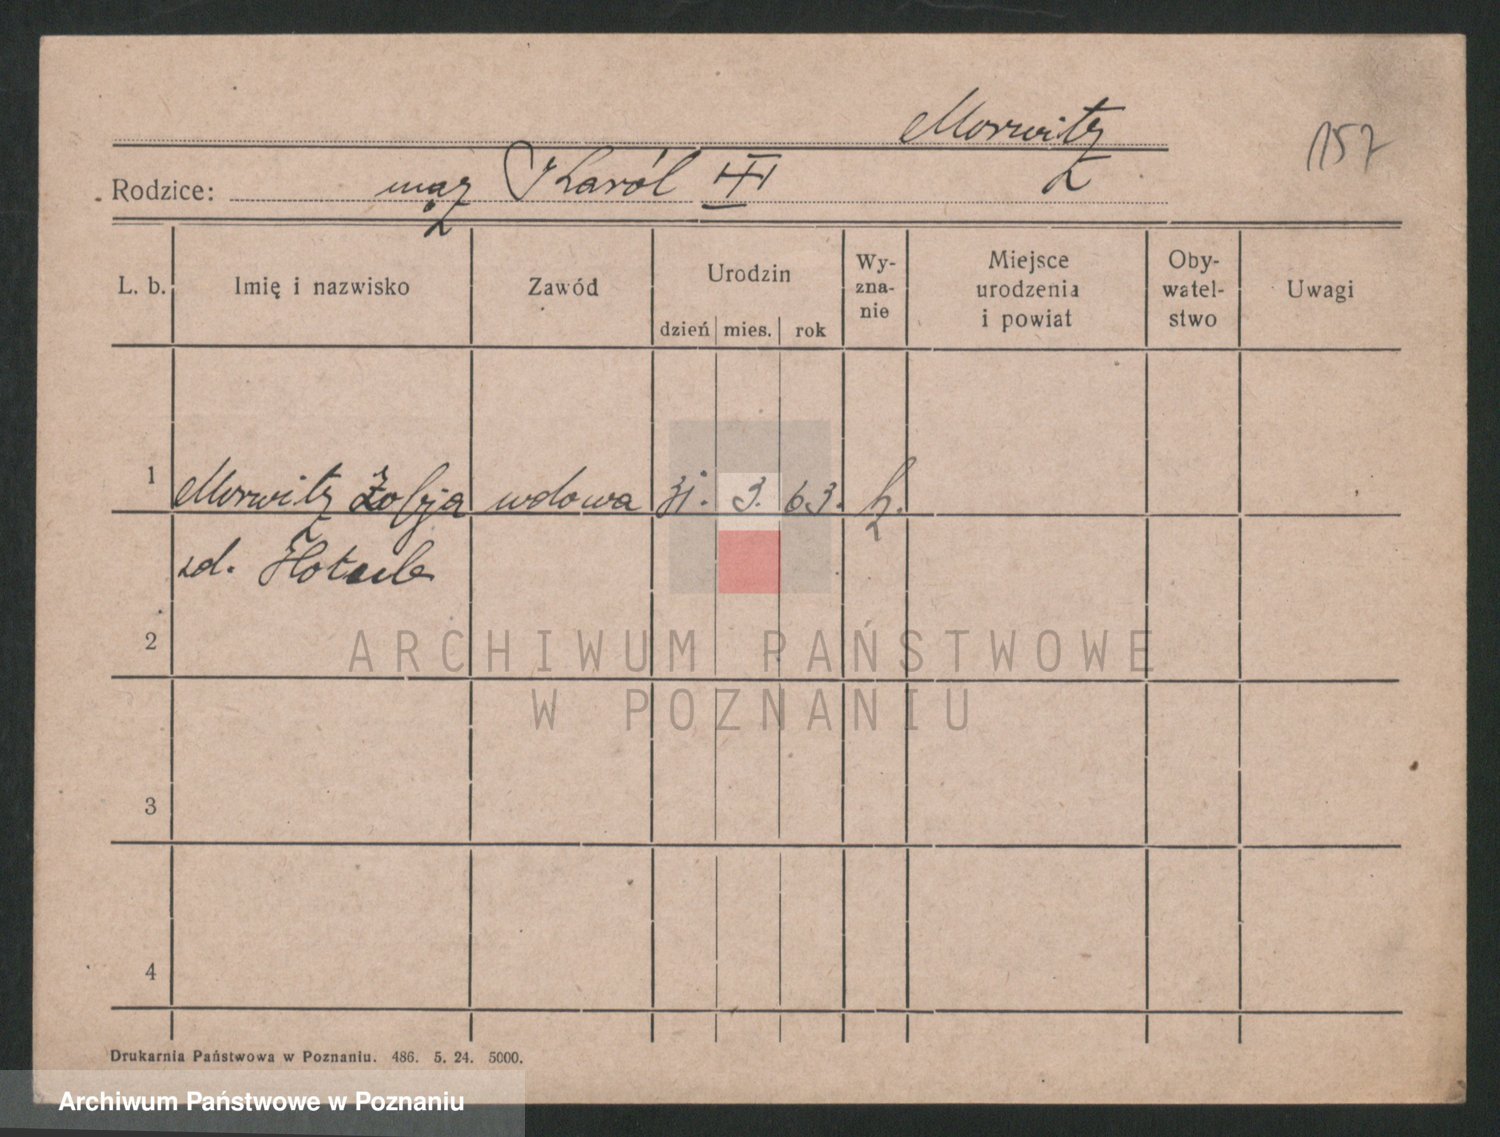 Morwitz
157
Rodzice: mąż Karól III
L. b. Imię i nazwisko Zawód Urodzin dzień mies. rok Wy-zna-nie Miejsce urodzenia i powiat Oby-watel-stwo Uwagi
1 Morwitz Zofja wdowa 31. 3. 63.
zd.
2
3
4
ARCHIWUM PAŃSTWOWE
W POZNANIU
Drukarnia Państwowa w Poznaniu. 486. 5. 24. 5000.
Archiwum Państwowe w Poznaniu